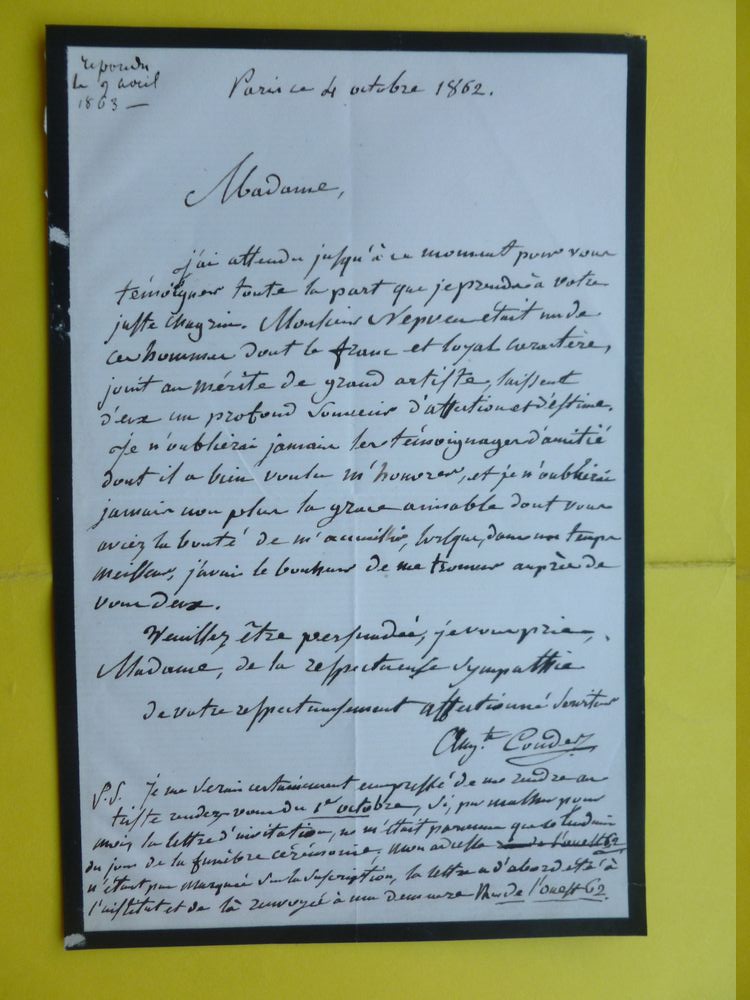 repondu
le 9 avril
1863 —
Paris ce 4 octobre 1862.
Madame,
j'ai attendu jusqu'à ce moment pour vous
témoigner toute la part que je prends à votre
juste chagrin. Monsieur Nepveu était un de
ces hommes dont le franc et loyal caractère,
joint au mérite de grand artiste, laissent
d'eux un profond souvenir d'affection et d'estime.
Je n'oublierai jamais les témoignages d'amitié
dont il a bien voulu m'honorer, et je n'oublierai
jamais non plus la grace aimable dont vous
aviez la bonté de m'accueillir, lorsque, dans un temps
meilleur, j'avais le bonheur de me trouver auprès de
vous deux.
Veuillez être persuadée, je vous prie,
Madame, de la respectueuse sympathie
de votre respectueusement affectionné serviteur
Aug.te Couder
P.S. Je me serais certainement empressé de me rendre au
triste rendez-vous du 1er octobre, si, par malheur pour
moi, la lettre d'invitation, ne m'était parvenue que le lendemain
du jour de la funèbre cérémonie, mon adresse rue de l'ouest 62
n'étant pas marquée sur la suscription, la lettre a d'abord été à
l'institut et de là renvoyée à ma demeure Rue de l'ouest 62.